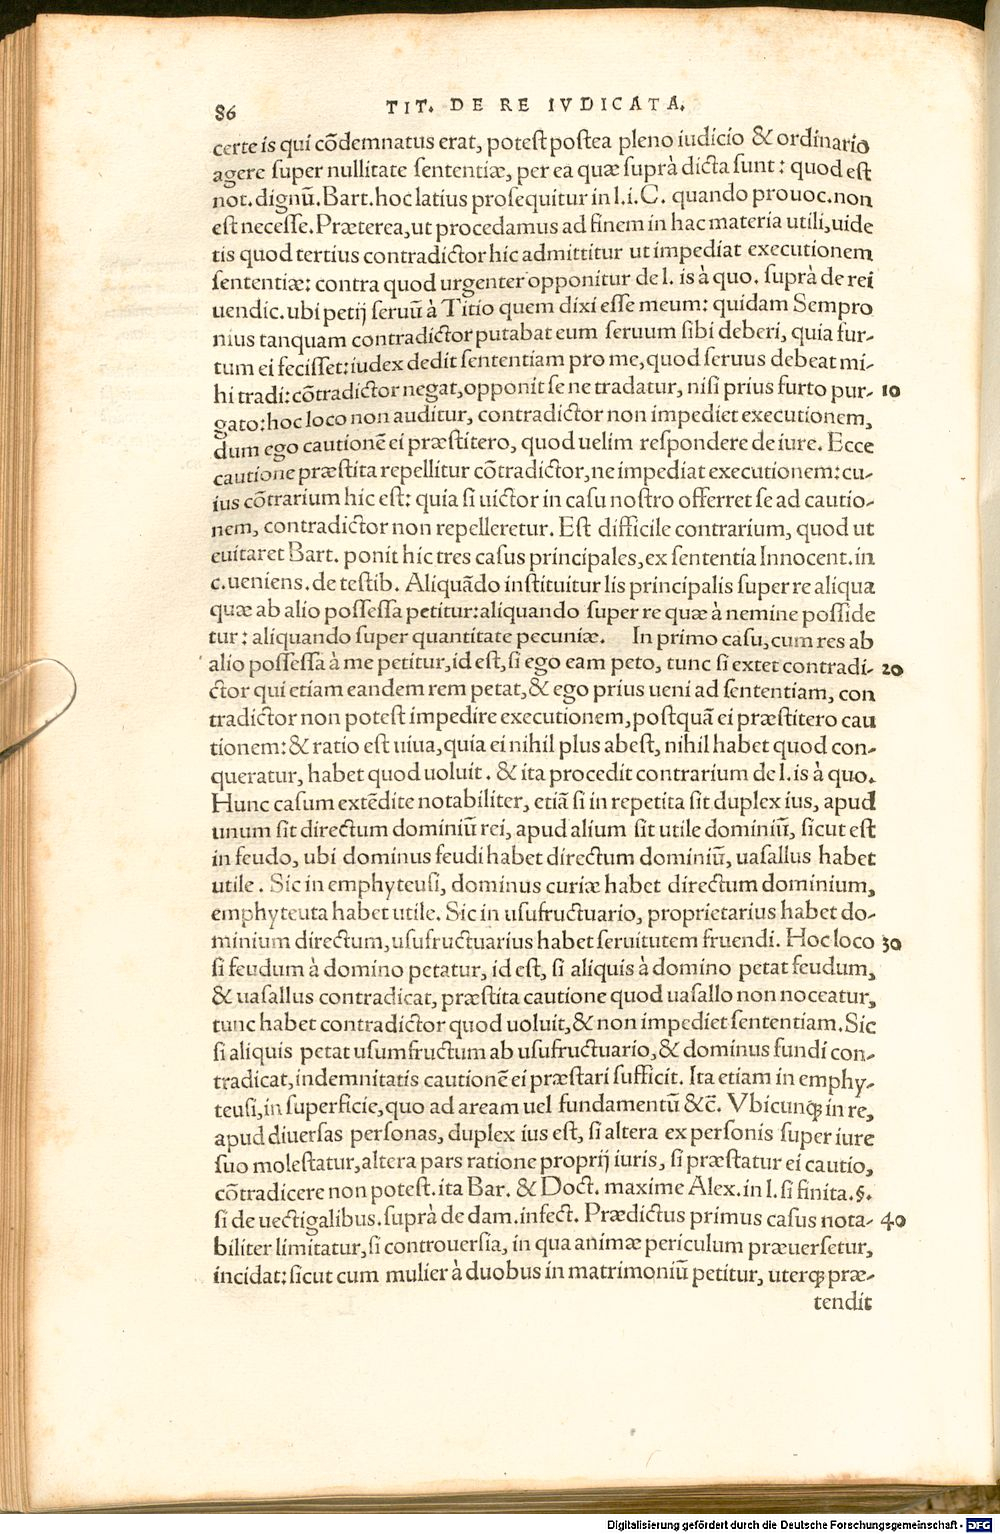 86 TIT. DE RE IVDICATA.
certe is qui cõdemnatus erat, potest postea pleno iudicio & ordinario
agere super nullitate sententiæ, per ea quæ suprà dicta sunt: quod est
not. dignũ. Bart. hoc latius prosequitur in l. i. C. quando prouoc. non
est necesse. Præterea, ut procedamus ad finem in hac materia utili, uide
tis quod tertius contradictor hic admittitur ut impediat executionem
sententiæ: contra quod urgenter opponitur de l. is à quo. suprà de rei
uendic. ubi petij seruũ à Titio quem dixi esse meum: quidam Sempro
nius tanquam contradictor putabat eum seruum sibi deberi, quia fur-
tum ei fecisset: iudex dedit sententiam pro me, quod seruus debeat mi-
hi tradi: cõtradictor negat, opponit se ne tradatur, nisi prius furto pur- 10
gato: hoc loco non auditur, contradictor non impediet executionem,
dum ego cautionẽ ei præstitero, quod uelim respondere de iure. Ecce
cautione præstita repellitur cõtradictor, ne impediat executionem: cu-
ius cõtrarium hic est: quia si uictor in casu nostro offerret se ad cautio-
nem, contradictor non repelleretur. Est difficile contrarium, quod ut
euitaret Bart. ponit hic tres casus principales, ex sententia Innocent. in
c. ueniens. de testib. Aliquãdo instituitur lis principalis super re aliqua
quæ ab alio possessa petitur: aliquando super re quæ à nemine posside
tur: aliquando super quantitate pecuniæ. In primo casu, cum res ab
alio possessa à me petitur, id est, si ego eam peto, tunc si extet contradi- 20
ctor qui etiam eandem rem petat, & ego prius ueni ad sententiam, con
tradictor non potest impedire executionem, postquã ei præstitero cau
tionem: & ratio est uiua, quia ei nihil plus abest, nihil habet quod con-
queratur, habet quod uoluit. & ita procedit contrarium de l. is à quo.
Hunc casum extẽdite notabiliter, etiã si in re petita sit duplex ius, apud
unum sit directum dominiũ rei, apud alium sit utile dominiũ, sicut est
in feudo, ubi dominus feudi habet directum dominiũ, uasallus habet
utile. Sic in emphyteusi, dominus curiæ habet directum dominium,
emphyteuta habet utile. Sic in usufructuario, proprietarius habet do-
minium directum, usufructuarius habet seruitutem fruendi. Hoc loco 30
si feudum à domino petatur, id est, si aliquis à domino petat feudum,
& uasallus contradicat, præstita cautione quod uasallo non noceatur,
tunc habet contradictor quod uoluit, & non impediet sententiam. Sic
si aliquis petat usumfructum ab usufructuario, & dominus fundi con-
tradicat, indemnitatis cautionẽ ei præstari sufficit. Ita etiam in emphy-
teusi, in superficie, quo ad aream uel fundamentũ &c̃. Vbicunq; in re,
apud diuersas personas, duplex ius est, si altera ex personis super iure
suo molestatur, altera pars ratione proprij iuris, si præstatur ei cautio,
cõtradicere non potest. ita Bar. & Doct. maxime Alex. in l. si finita. §.
si de uectigalibus. suprà de dam. infect. Prædictus primus casus nota- 40
biliter limitatur, si controuersia, in qua animæ periculum præuersetur,
incidat: sicut cum mulier à duobus in matrimoniũ petitur, uterq; præ-
tendit
Digitalisierung gefördert durch die Deutsche Forschungsgemeinschaft - DFG